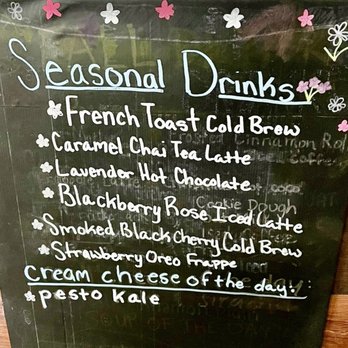 Seasonal Drinks
French Toast Cold Brew
Caramel Chai Tea Latte
Lavender Hot Chocolate
Blackberry Rose Iced Latte
Smoked Black Cherry Cold Brew
Strawberry Oreo Frappe
Cream cheese of the day:
pesto kale